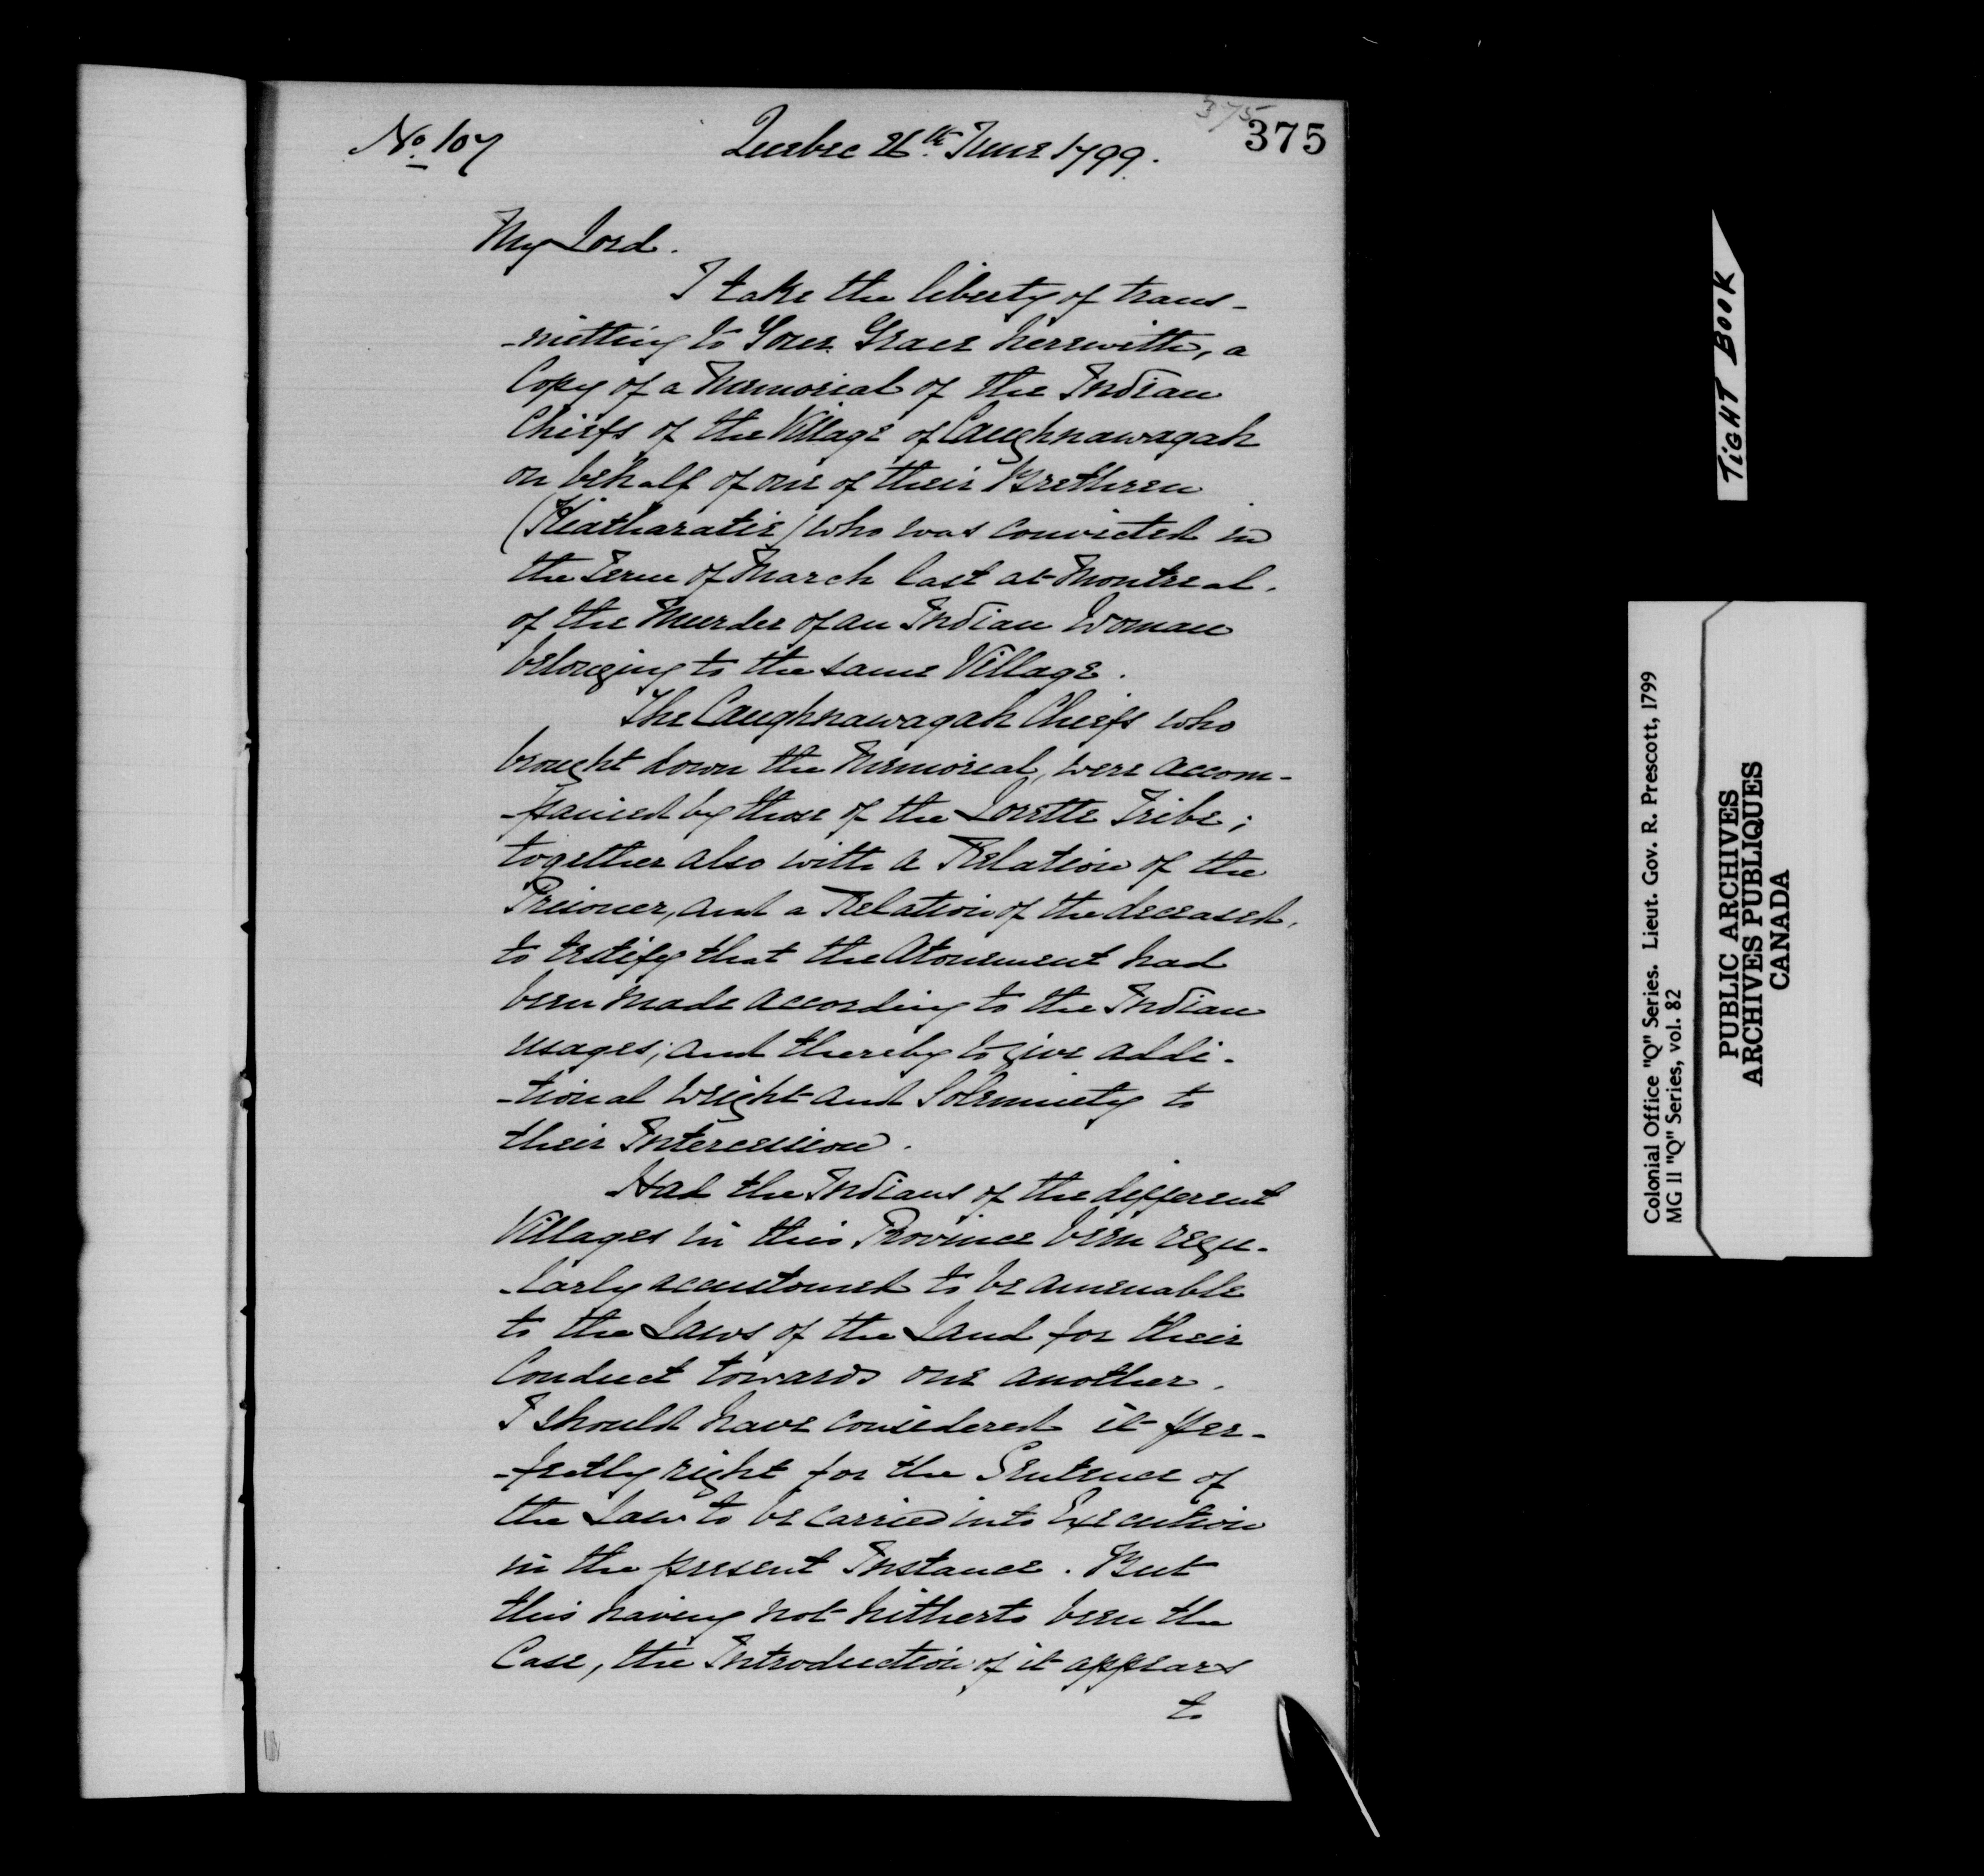 375
No. 107
Quebec 26th. June 1799.
375
My Lord.
I take the liberty of trans-
-mitting to Your Grace herewith, a
Copy of a Memorial of the Indian
Chiefs of the Village of Caughnawagah
on behalf of one of their Brethren
(Kiatharatie) who was convicted in
the Term of March last at Montreal.
of the Murder of an Indian Woman
belonging to the same Village.
The Caughnawagah Chiefs who
brought down the Memorial, were accom-
-panied by those of the Lorette Tribe;
together also with a Relation of the
Prisoner, and a Relation of the deceased,
to testify that the Atonement had
been made according to the Indian
usages; and thereby to give addi-
-tional weight and Solemnity to
their Intercession.
Had the Indians of the different
Villages in this Province been regu-
-larly accustomed to be amenable
to the Laws of the Land for their
Conduct towards one another.
I should have considered it per-
-fectly right for the Sentence of
the Law to be carried into Execution
in the present Instance. But
this having not hitherto been the
Case, the Introduction of it appears
to
TIGHT BOOK
Colonial Office "Q" Series. Lieut. Gov. R. Prescott, 1799
MG 11 "Q" Series, vol. 82
PUBLIC ARCHIVES
ARCHIVES PUBLIQUES
CANADA